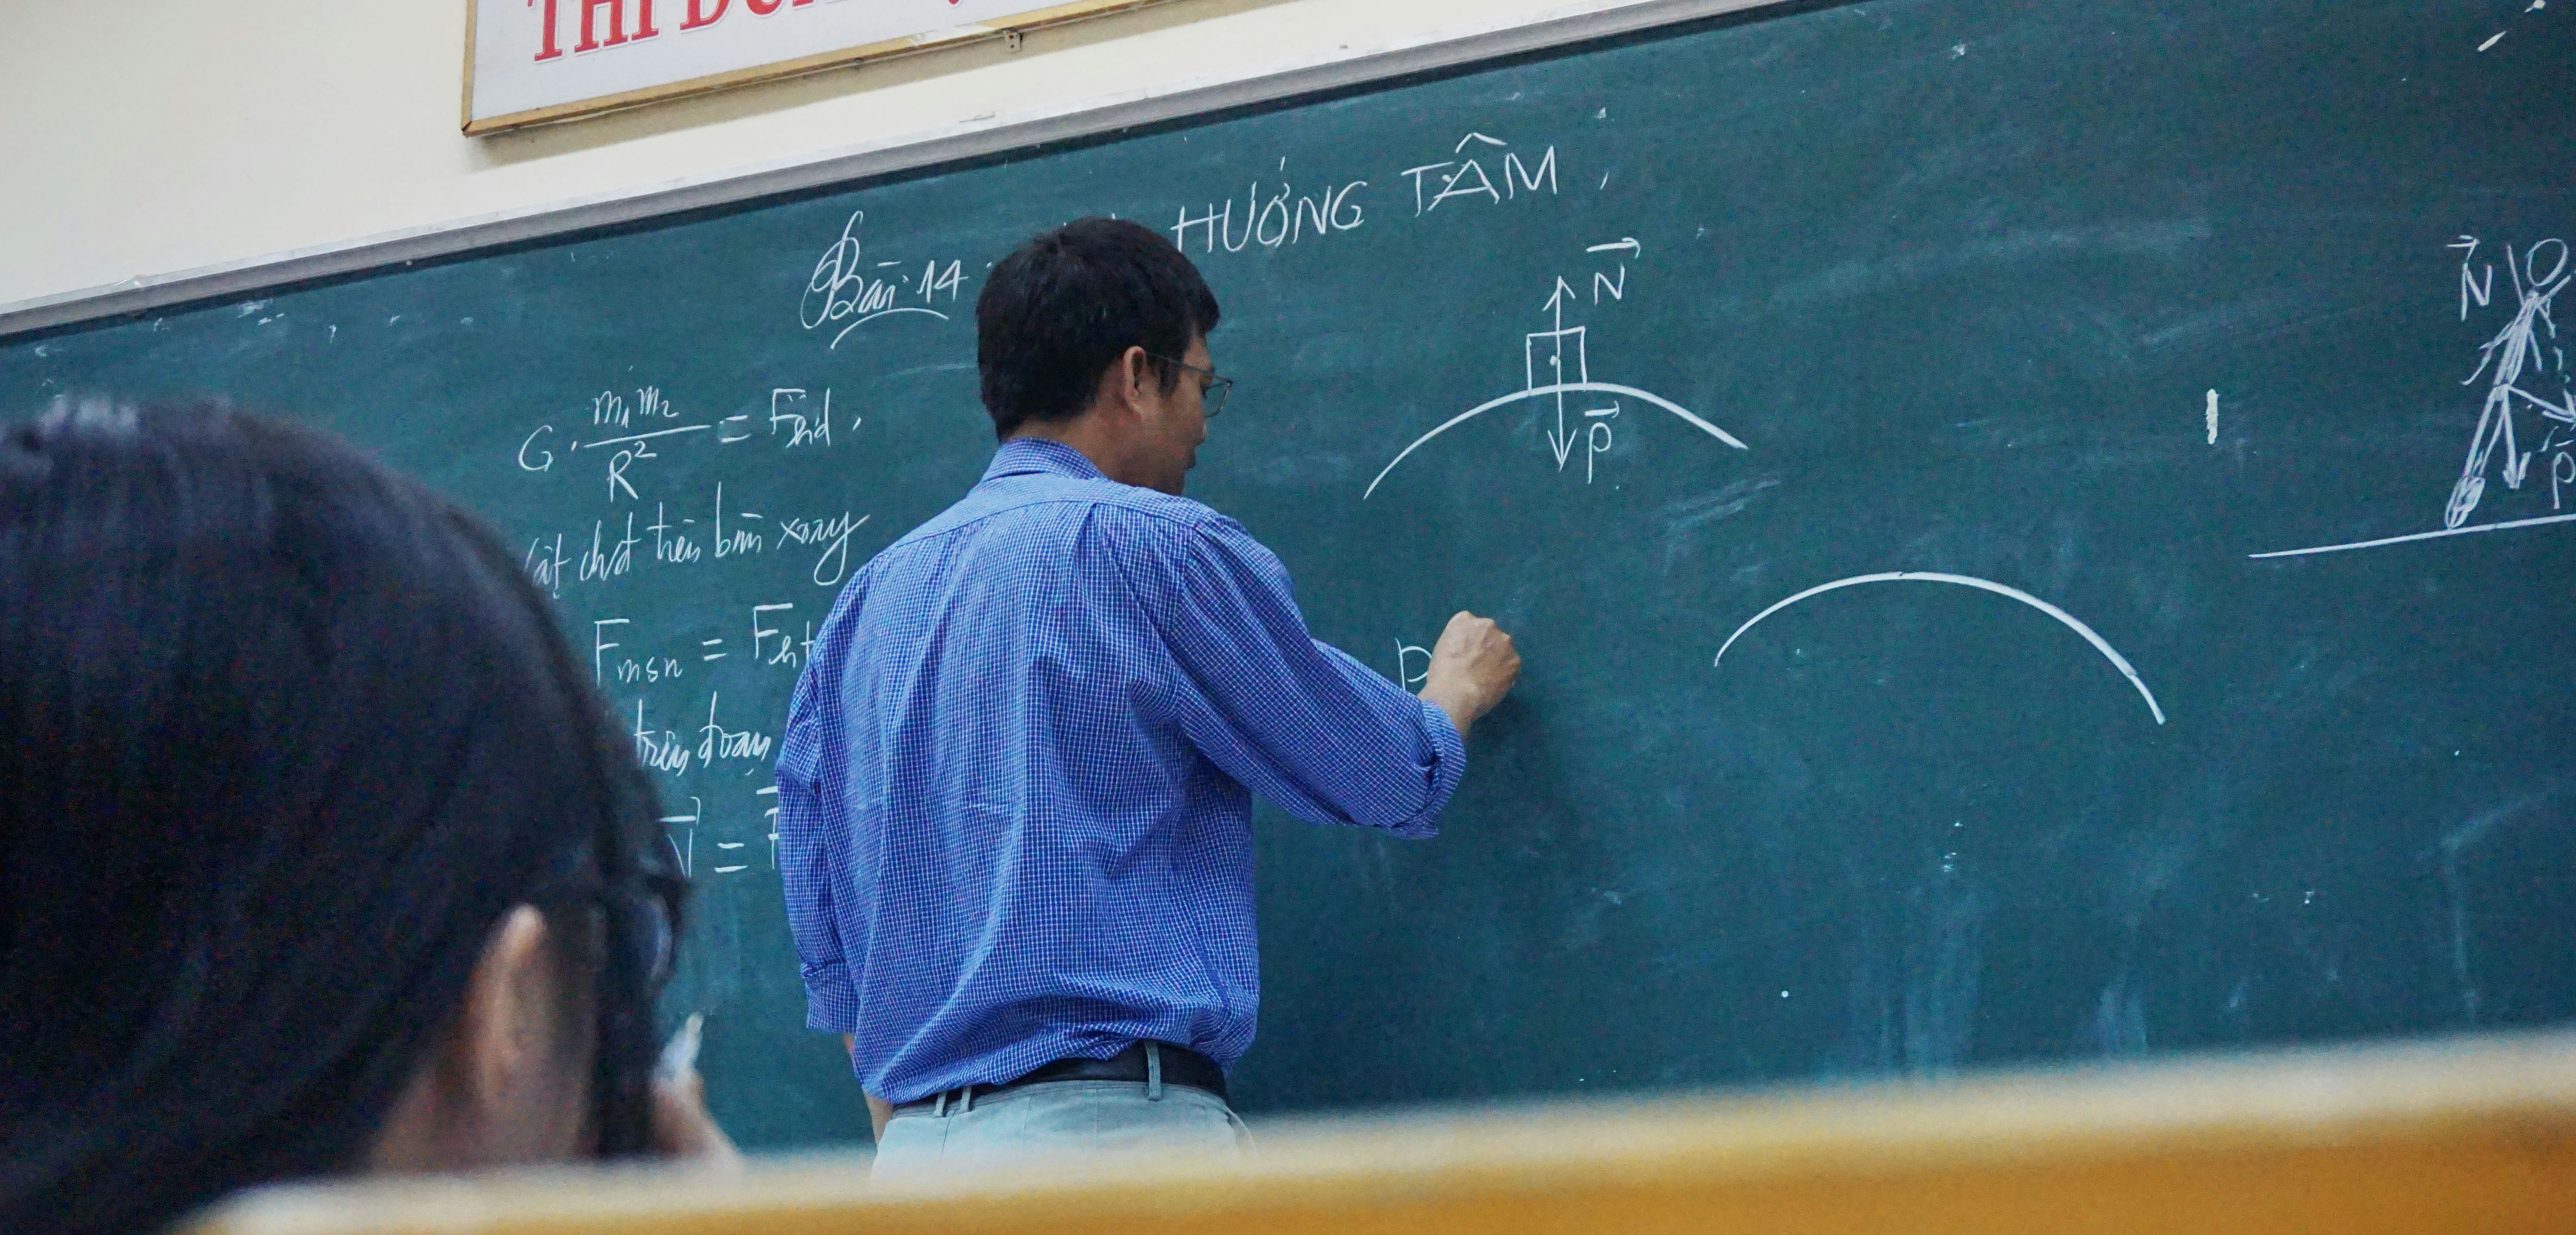 THI
Bài 14
HƯỚNG TÂM
G. m₁m₂ / R² = Fhd
chớt trên bàn xoay
Fmsn = Fht
trên đoạn
N =
N
P
P
N
P